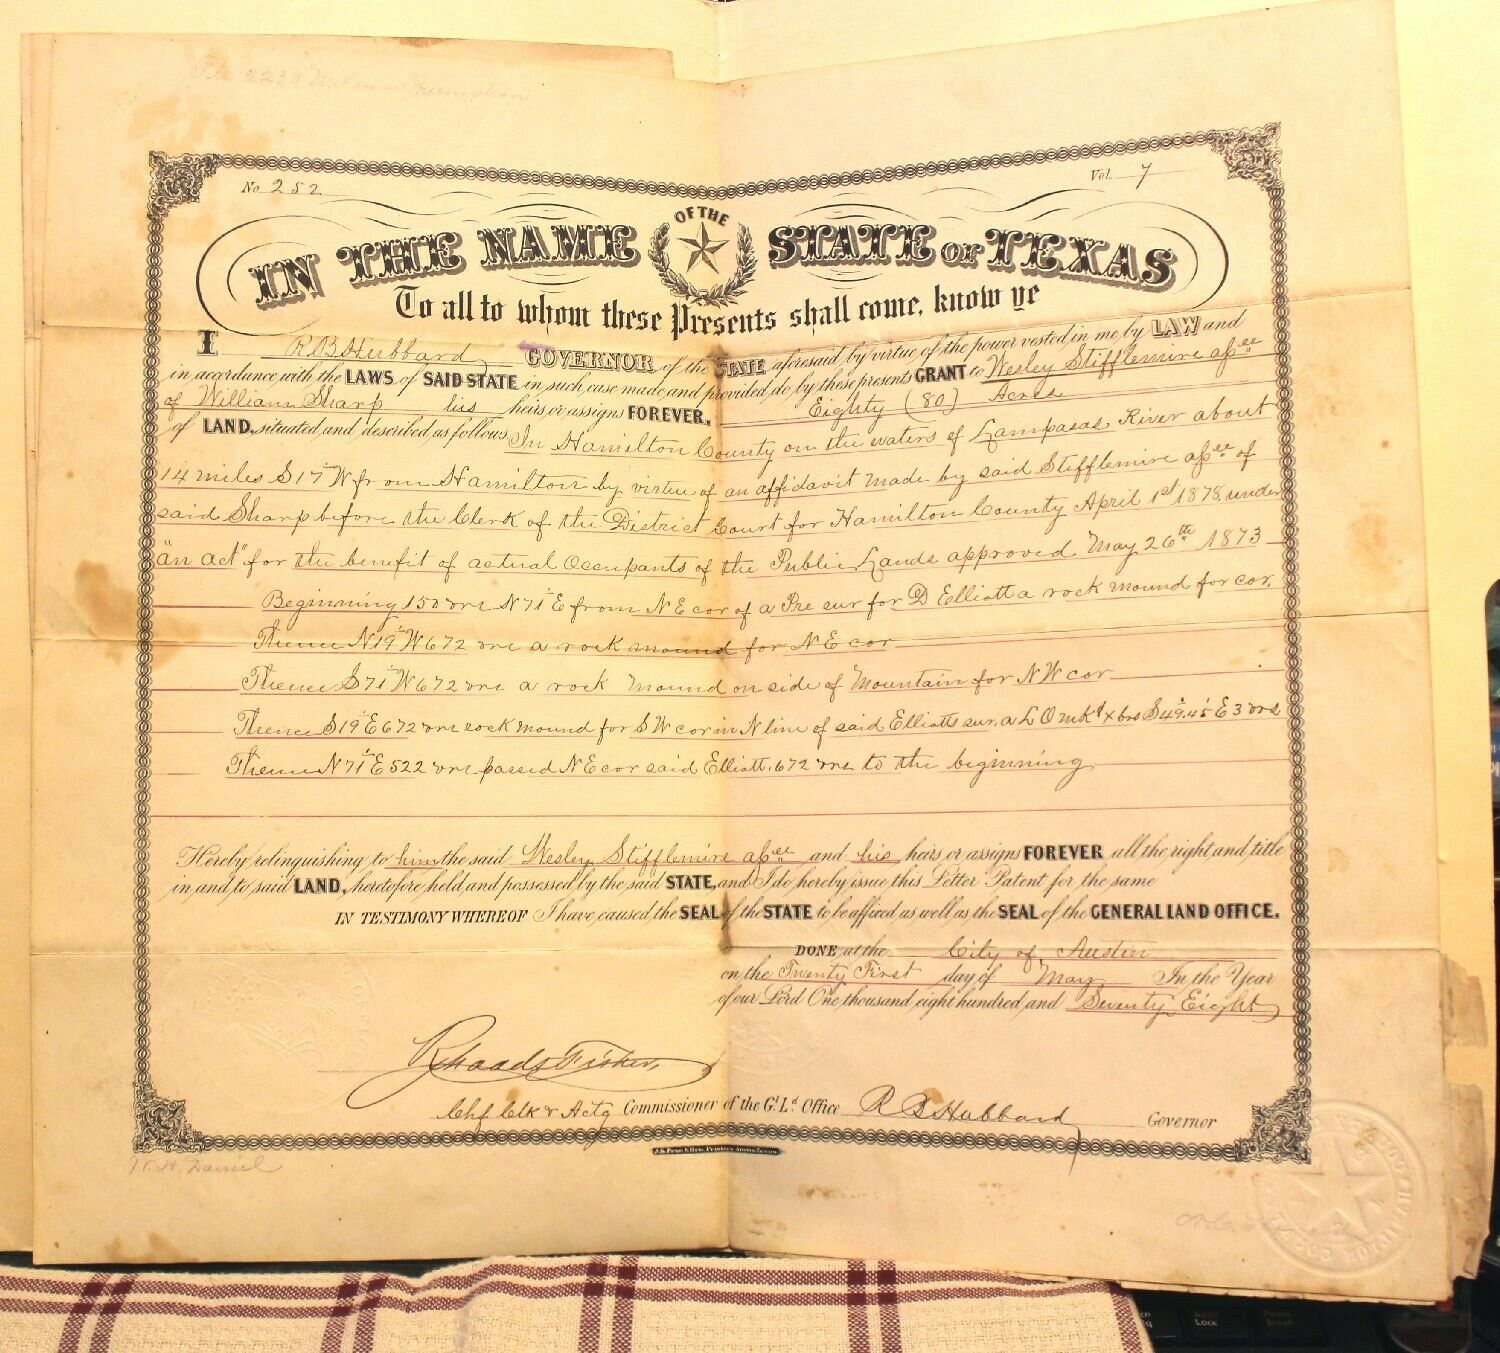 No. 252
Vol. 7
IN THE NAME OF THE STATE OF TEXAS
To all to whom these Presents shall come, know ye
I R B Hubbard GOVERNOR of the STATE aforesaid, by virtue of the power vested in me by LAW and
in accordance with the LAWS of SAID STATE in such case made and provided, do by these presents GRANT to Wesley Stifflemire assee
of William Sharp his heirs or assigns FOREVER. Eighty (80) Acres
of LAND, situated and described as follows, In Hamilton County on the waters of Lampasas River about
14 miles S 17° W from Hamilton by virtue of an affidavit made by said Stifflemire assee of
said Sharp before the Clerk of the District Court for Hamilton County April 1st 1878, under
"an act" for the benefit of actual Occupants of the Public Lands approved May 26th 1873
Beginning 150 vrs N 71° E from N E cor of a Pre sur for D Elliott a rock mound for cor,
Thence N 19° W 672 vrs a rock mound for N E cor
Thence S 71° W 672 vrs a rock mound on side of Mountain for N W cor
Thence S 19° E 672 vrs rock mound for S W cor in N line of said Elliotts sur, a L O mkd X brs S 49° 45' E 3 vrs
Thence N 71° E 522 vrs passed N E cor said Elliott, 672 vrs to the beginning
Hereby relinquishing to him the said Wesley Stifflemire assee and his heirs or assigns FOREVER all the right and title
in and to said LAND, heretofore held and possessed by the said STATE, and I do hereby issue this Letter Patent for the same
IN TESTIMONY WHEREOF I have caused the SEAL of the STATE to be affixed as well as the SEAL of the GENERAL LAND OFFICE.
DONE at the City of Austin
on the Twenty First day of May In the Year
of our Lord One thousand eight hundred and Seventy Eight
Rhoads Fisher,
Chf Clk & Actg Commissioner of the Gl. Ld. Office R B Hubbard Governor
W. H. Daniel
Scroll
Lock
Pause
Break